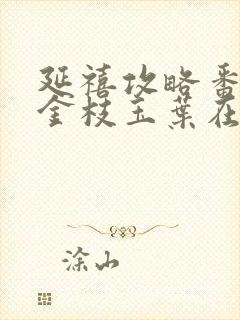 延禧攻略番
金枝玉葉在
涂山